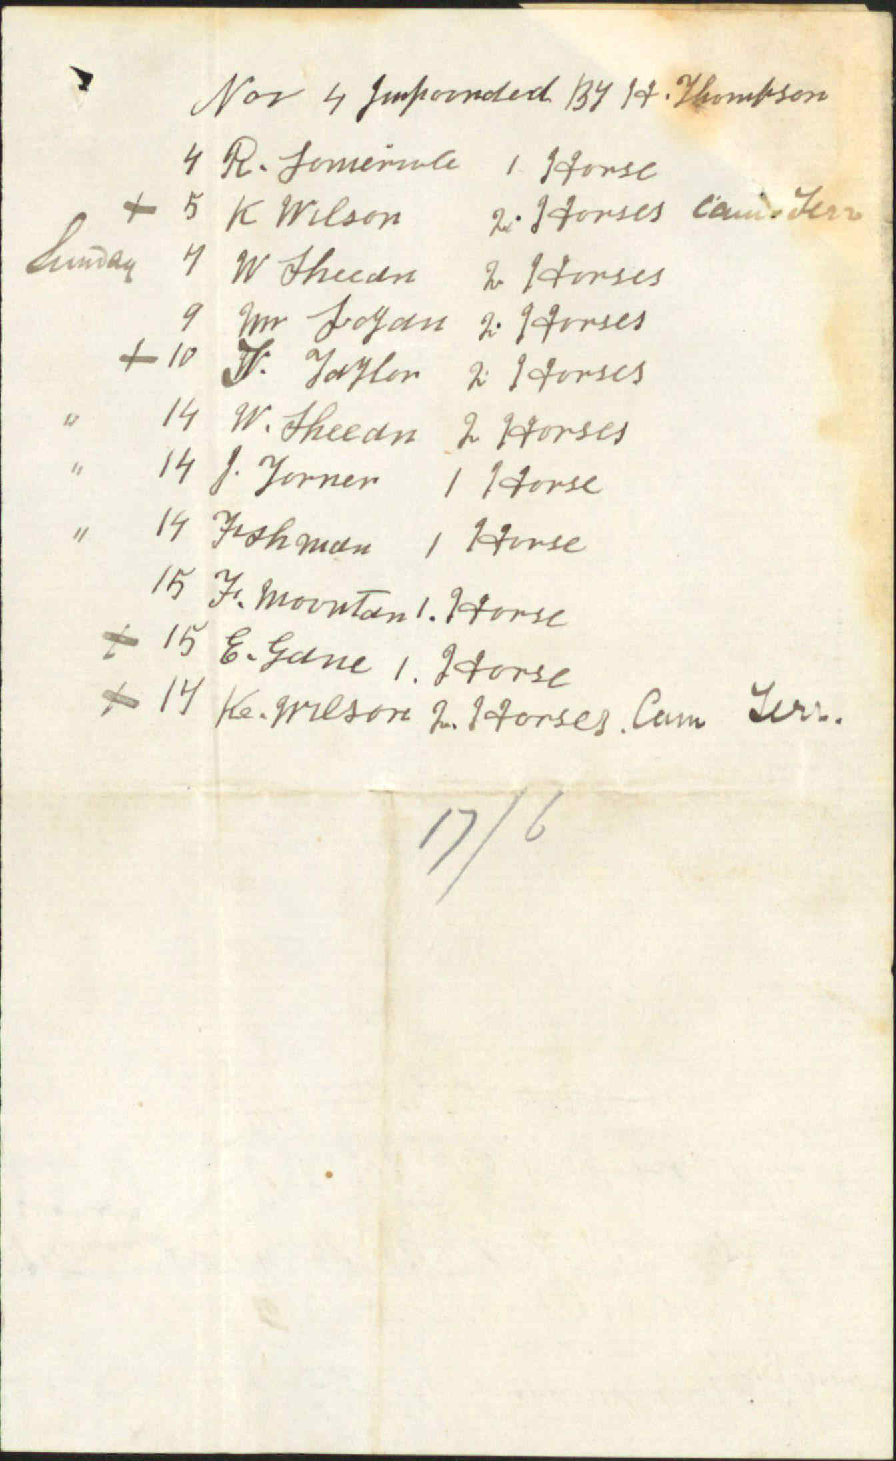 Nov 4 Impounded By H. Thompson
4 R. Somervile 1 Horse
+ 5 K Wilson 2. Horses Cam. Terr
Sunday 7 W Sheean 2 Horses
9 Mr Logan 2. Horses
+ 10 Taylor 2 Horses
" 14 W. Sheean 2 Horses
" 14 J. Torner 1 Horse
" 14 Fishman 1 Horse
15 F. Mountan 1. Horse
+ 15 E. Gane 1. Horse
+ 17 Ke. Wilson 2. Horses. Cam Terr.
17/6